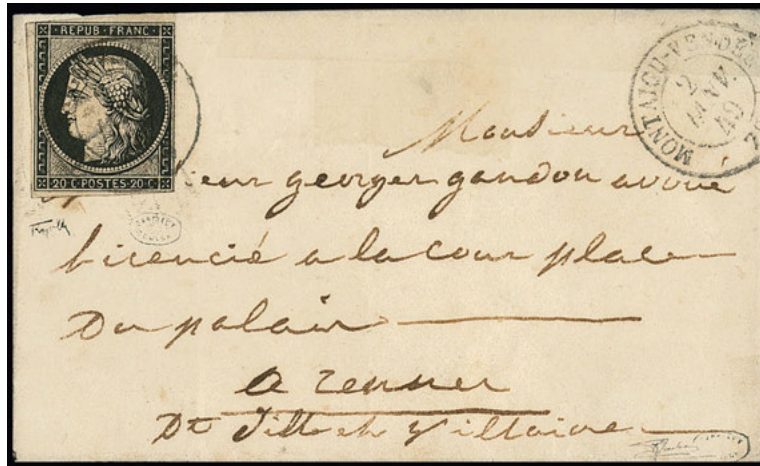 REPUB·FRANC·
20·C·POSTES·20·C·
MONTAIGU-VENDÉE
2
JANV
49
Monsieur
georges gandon avoué
licencié a la cour place
Du palais
a rennes
Dt ille et Villaine